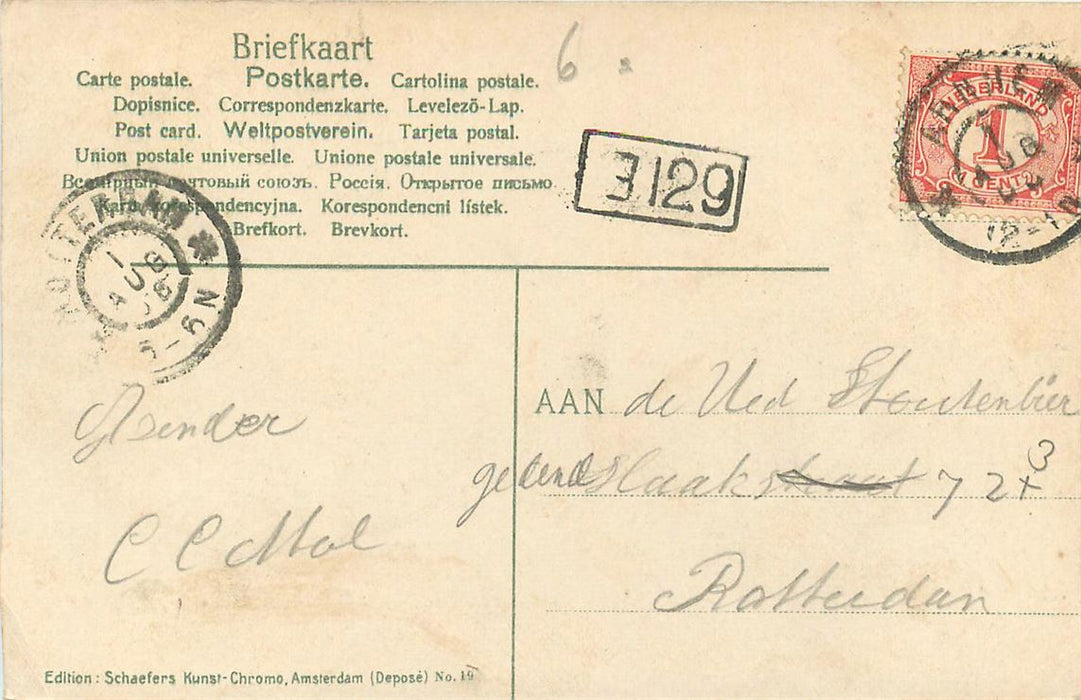 Briefkaart
Carte postale. Postkarte. Cartolina postale.
Dopisnice. Correspondenzkarte. Levelezõ-Lap.
Post card. Weltpostverein. Tarjeta postal.
Union postale universelle. Unione postale universale.
Всемирный почтовый союзъ. Россія. Открытое письмо.
Karta korespondencyjna. Korespondencni lístek.
Brefkort. Brevkort.
6
3129
NEDERLAND
1
CENT
ARNHEM
12-1N
ROTTERDAM
1 AUG 06
5-6N
AAN de Ued Stoutenbier
Slaakstraat 72 3
Rotterdam
Afzender
C C Mol
Edition: Schaefers Kunst-Chromo, Amsterdam (Deposé) No. 19